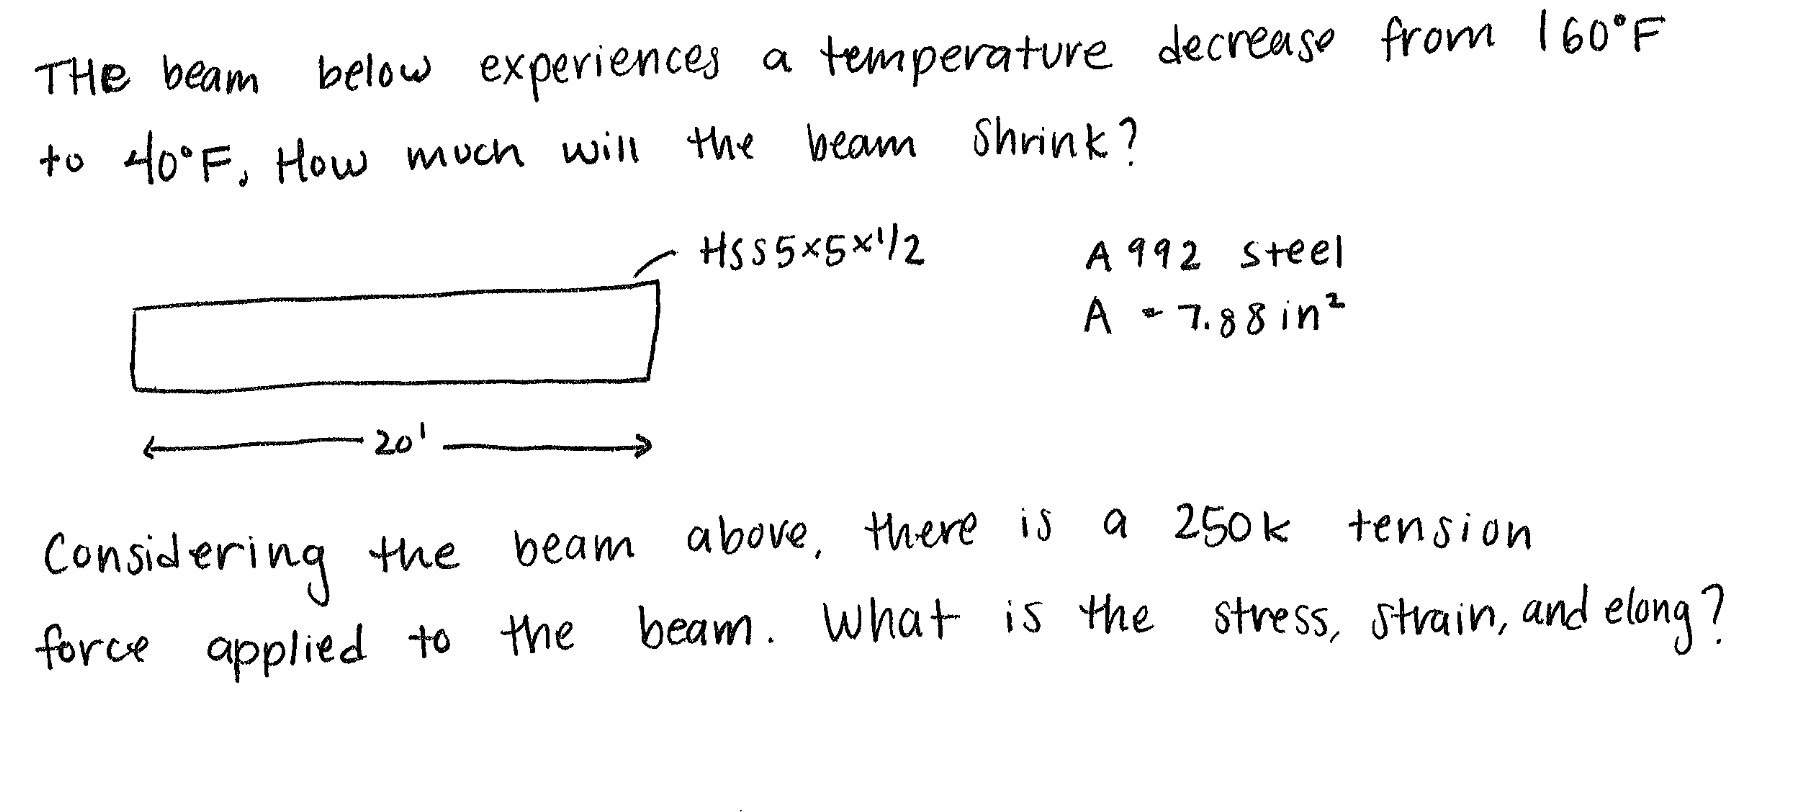 THe beam below experiences a temperature decrease from 160°F
to 40°F. How much will the beam shrink?
HSS5×5×1/2
A992 steel
A = 7.88 in²
20'
Considering the beam above, there is a 250k tension
force applied to the beam. What is the stress, strain, and elong?